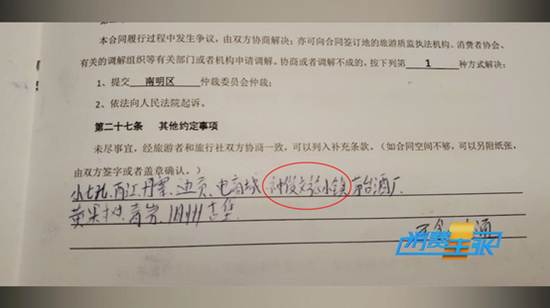 本合同履行过程中发生争议，由双方协商解决；亦可向合同签订地的旅游质监执法机构、消费者协会、
有关的调解组织等有关部门或者机构申请调解。协商或者调解不成的，按下列第 1 种方式解决：
1、提交 南明区 仲裁委员会仲裁；
2、依法向人民法院起诉。
第二十七条 其他约定事项
未尽事宜，经旅游者和旅行社双方协商一致，可以列入补充条款。（如合同空间不够，可以另附纸张，
由双方签字或者盖章确认。）
小七孔、西江、丹寨、 电商城、 小镇、茅台酒厂、
黄果树、青岩、
消费主张